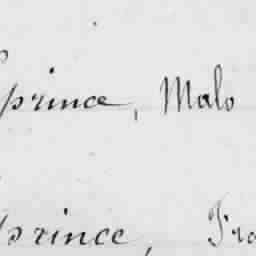 prince, Malo
prince, Fra